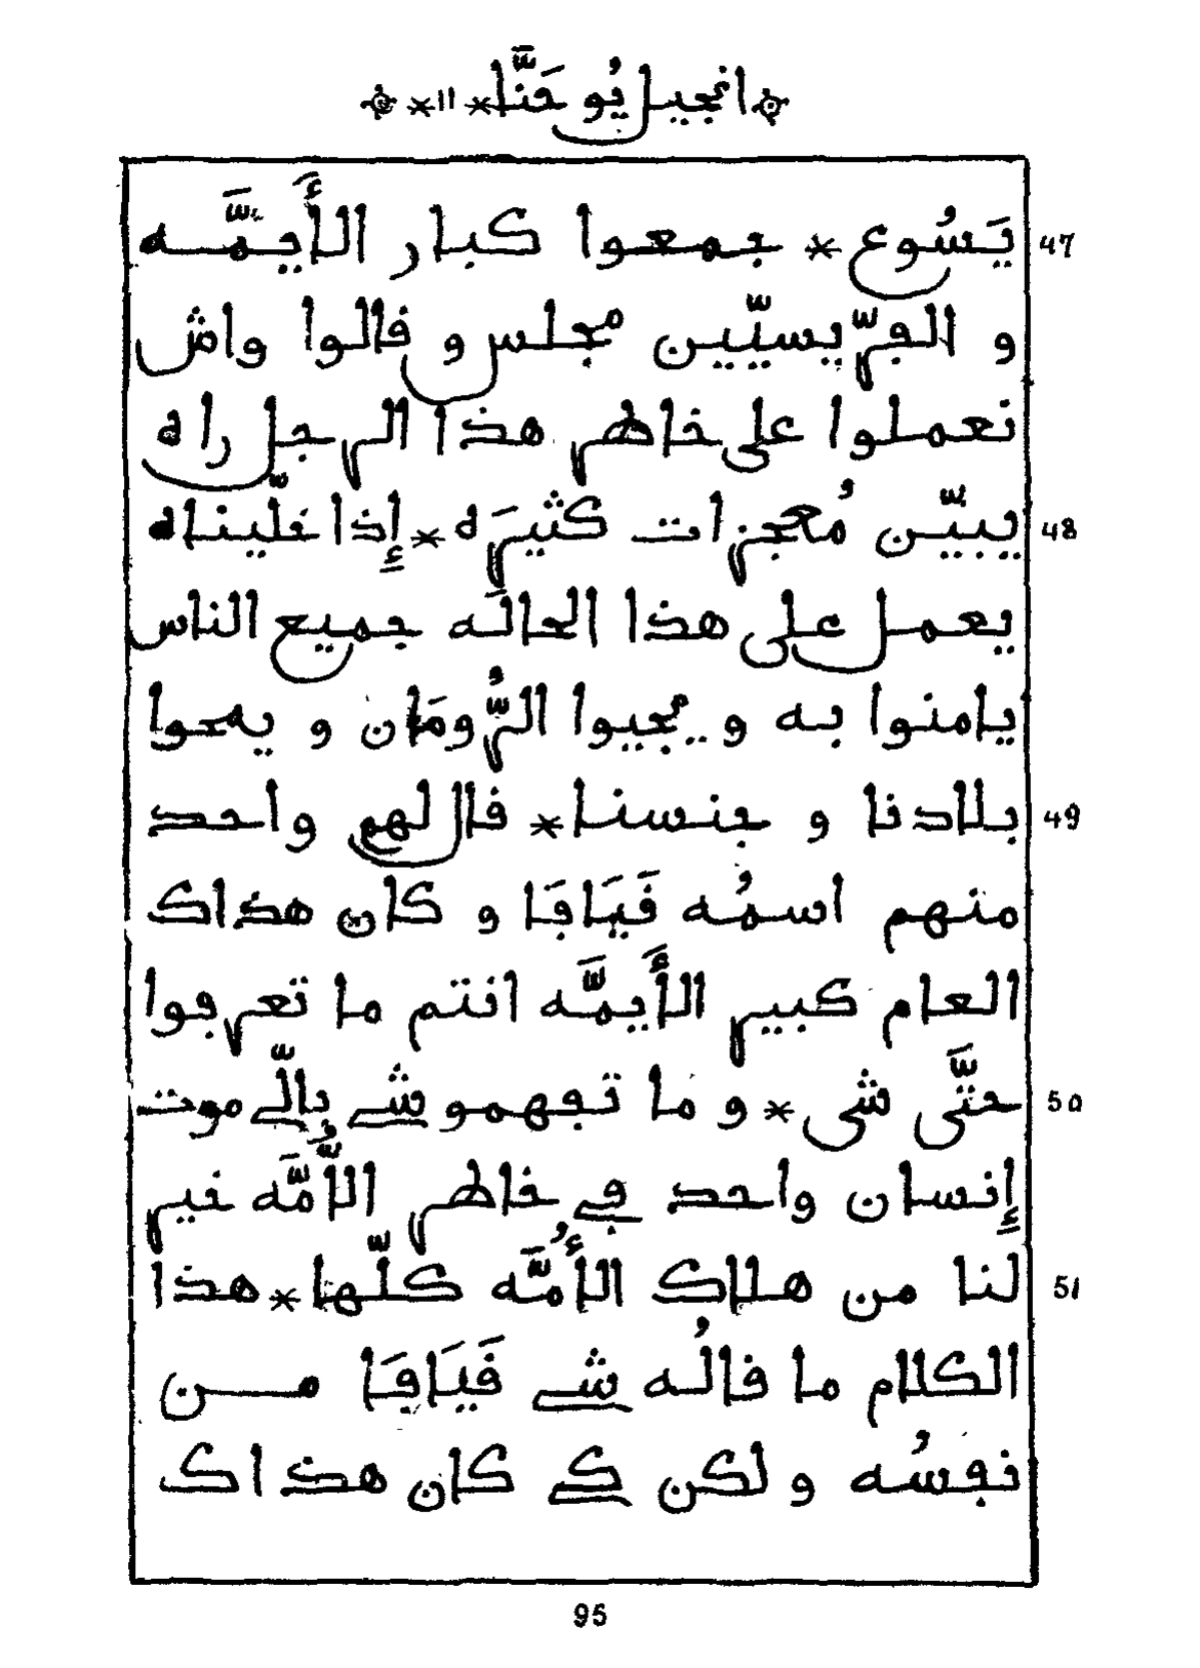 انجيل يُوحَنَّا * ١١ *
يَسُوع * جمعوا كبار الأَيمَّه 47
و الفرّيسيّين مجلس و قالوا واش
نعملوا على خاطر هذا الرجل راه
يبيّن مُعجزات كثيرَه * إذا خلّيناه 48
يعمل على هذا الحالَه جميع الناس
يامنوا به و يجيوا الرُّومَان و يمحوا
بلادنا و جنسنا * قال لهم واحد 49
منهم اسمُه قَيَافَا و كان هذاك
العام كبير الأَيمَّه انتم ما تعرفوا
حتَّى شي * و ما تفهمو شي بالّي موت 50
إنسان واحد في خاطر الاُمَّه خير
لنا من هلاك الأُمَّه كلّها * هذا 51
الكلام ما قالُه شي قَيَافَا من
نفسُه و لكن كي كان هذاك
95